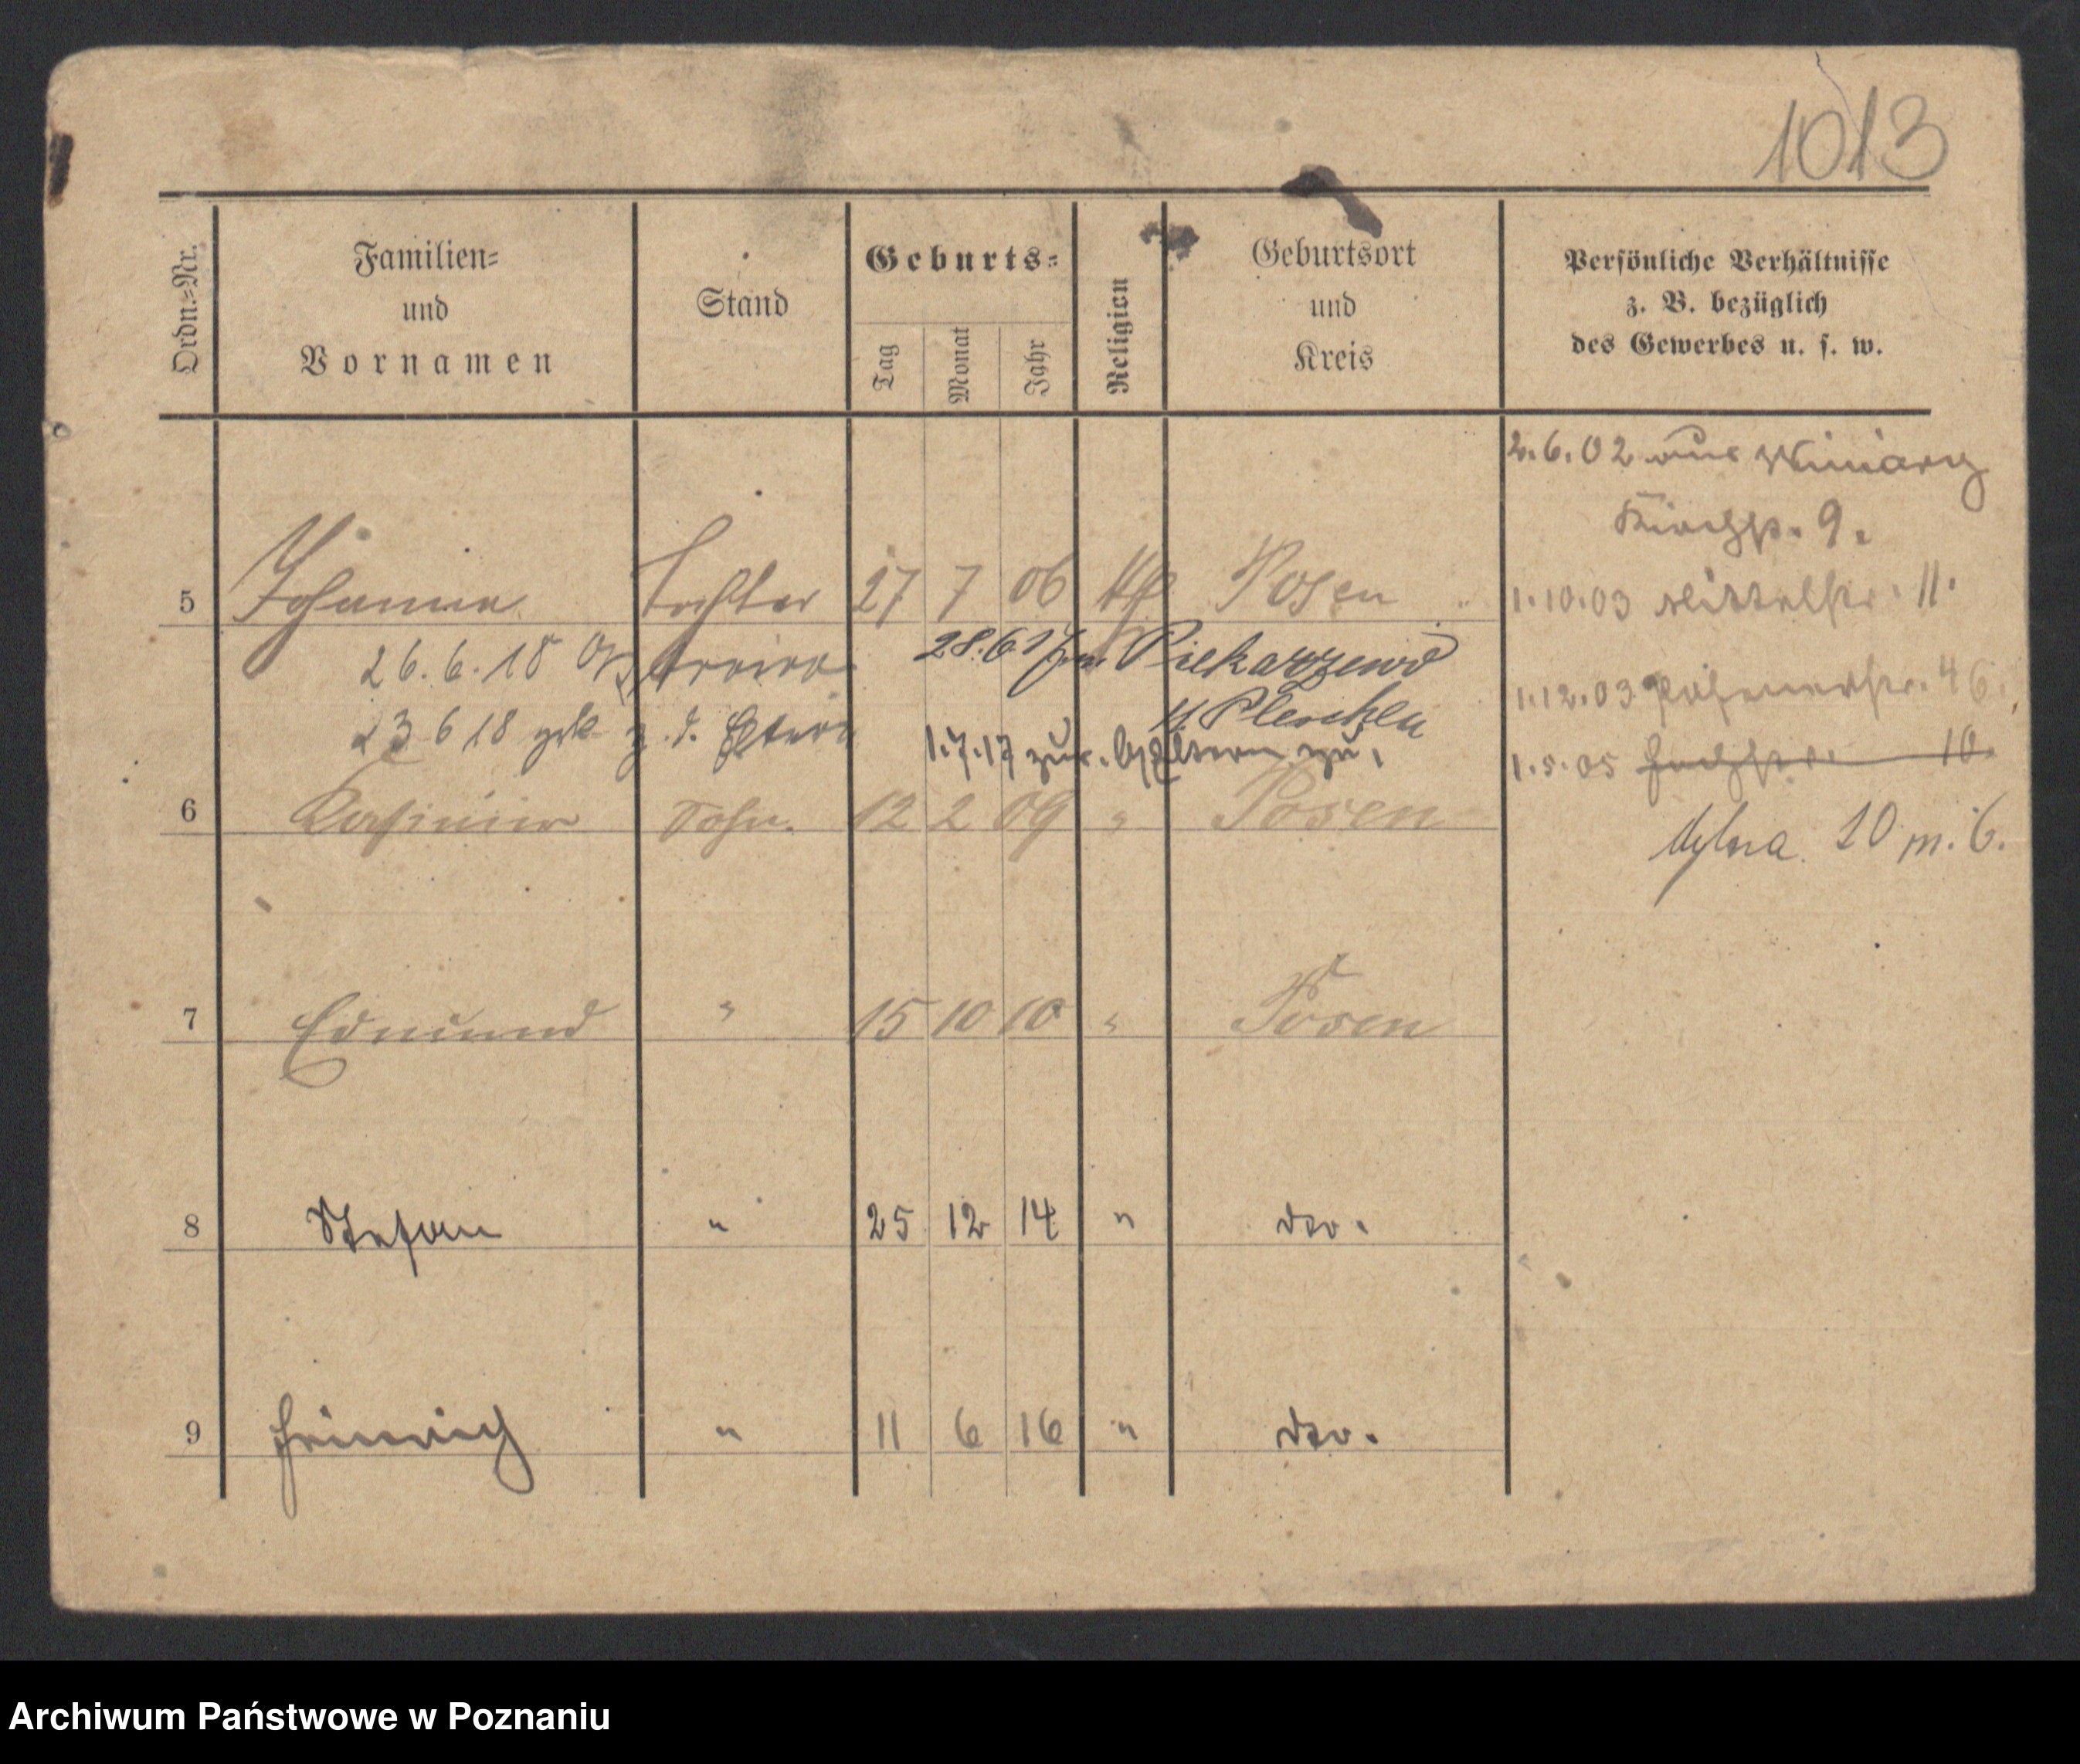 1013
Ordn.=Nr.
Familien=
und
Vornamen
Stand
Geburts=
Tag
Monat
Jahr
Religion
Geburtsort
und
Kreis
Persönliche Verhältnisse
z. B. bezüglich
des Gewerbes u. s. w.
2.6.02 aus Winiary
Kirchstr. 9.
5 Johanna Tochter 27 7 06 kth Posen
1.10.03 Mittelstr. 11.
26.6.18
28.6.17 Piekarzewo
1.12.03 Posenerstr. 46.
23 6 18 z. d. Eltern
Pleschen
1.7.17 zur. Eltern
1.5.05 10
6 Kasimir Sohn. 12 2 09 " Posen
10 m. 6.
7 Edmund " 15 10 10 " Posen
8 Stefan " 25 12 14 " dto.
9 " 11 6 16 " dto.
Archiwum Państwowe w Poznaniu